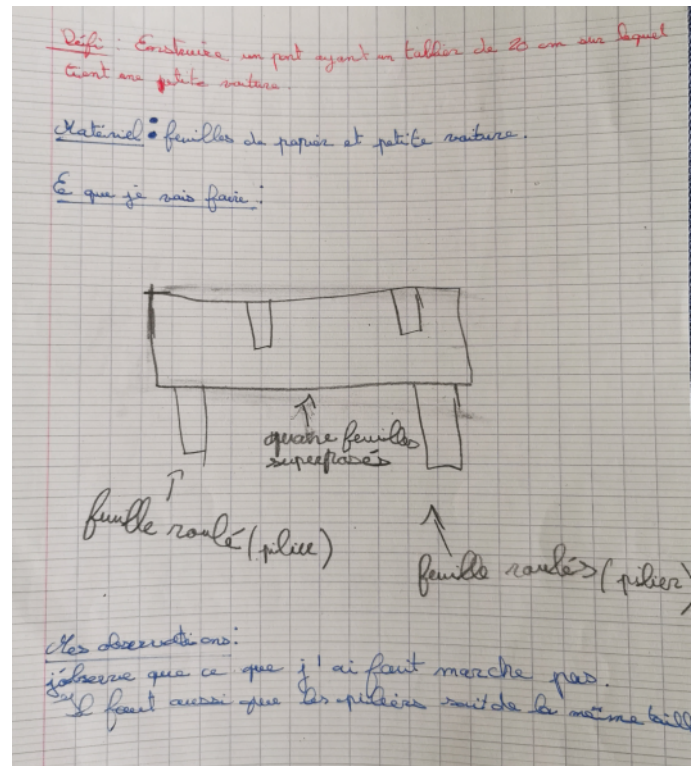 Défi : Construire un pont ayant un tablier de 20 cm sur lequel
tient une petite voiture.
Matériel : feuilles de papier et petite voiture.
Ce que je vais faire :
quatre feuilles
superposés
feuille roulé (pilier)
feuille roulés (pilier)
Mes observations :
j'observe que ce que j'ai fait marche pas.
Il faut aussi que les piliers soit de la même taille